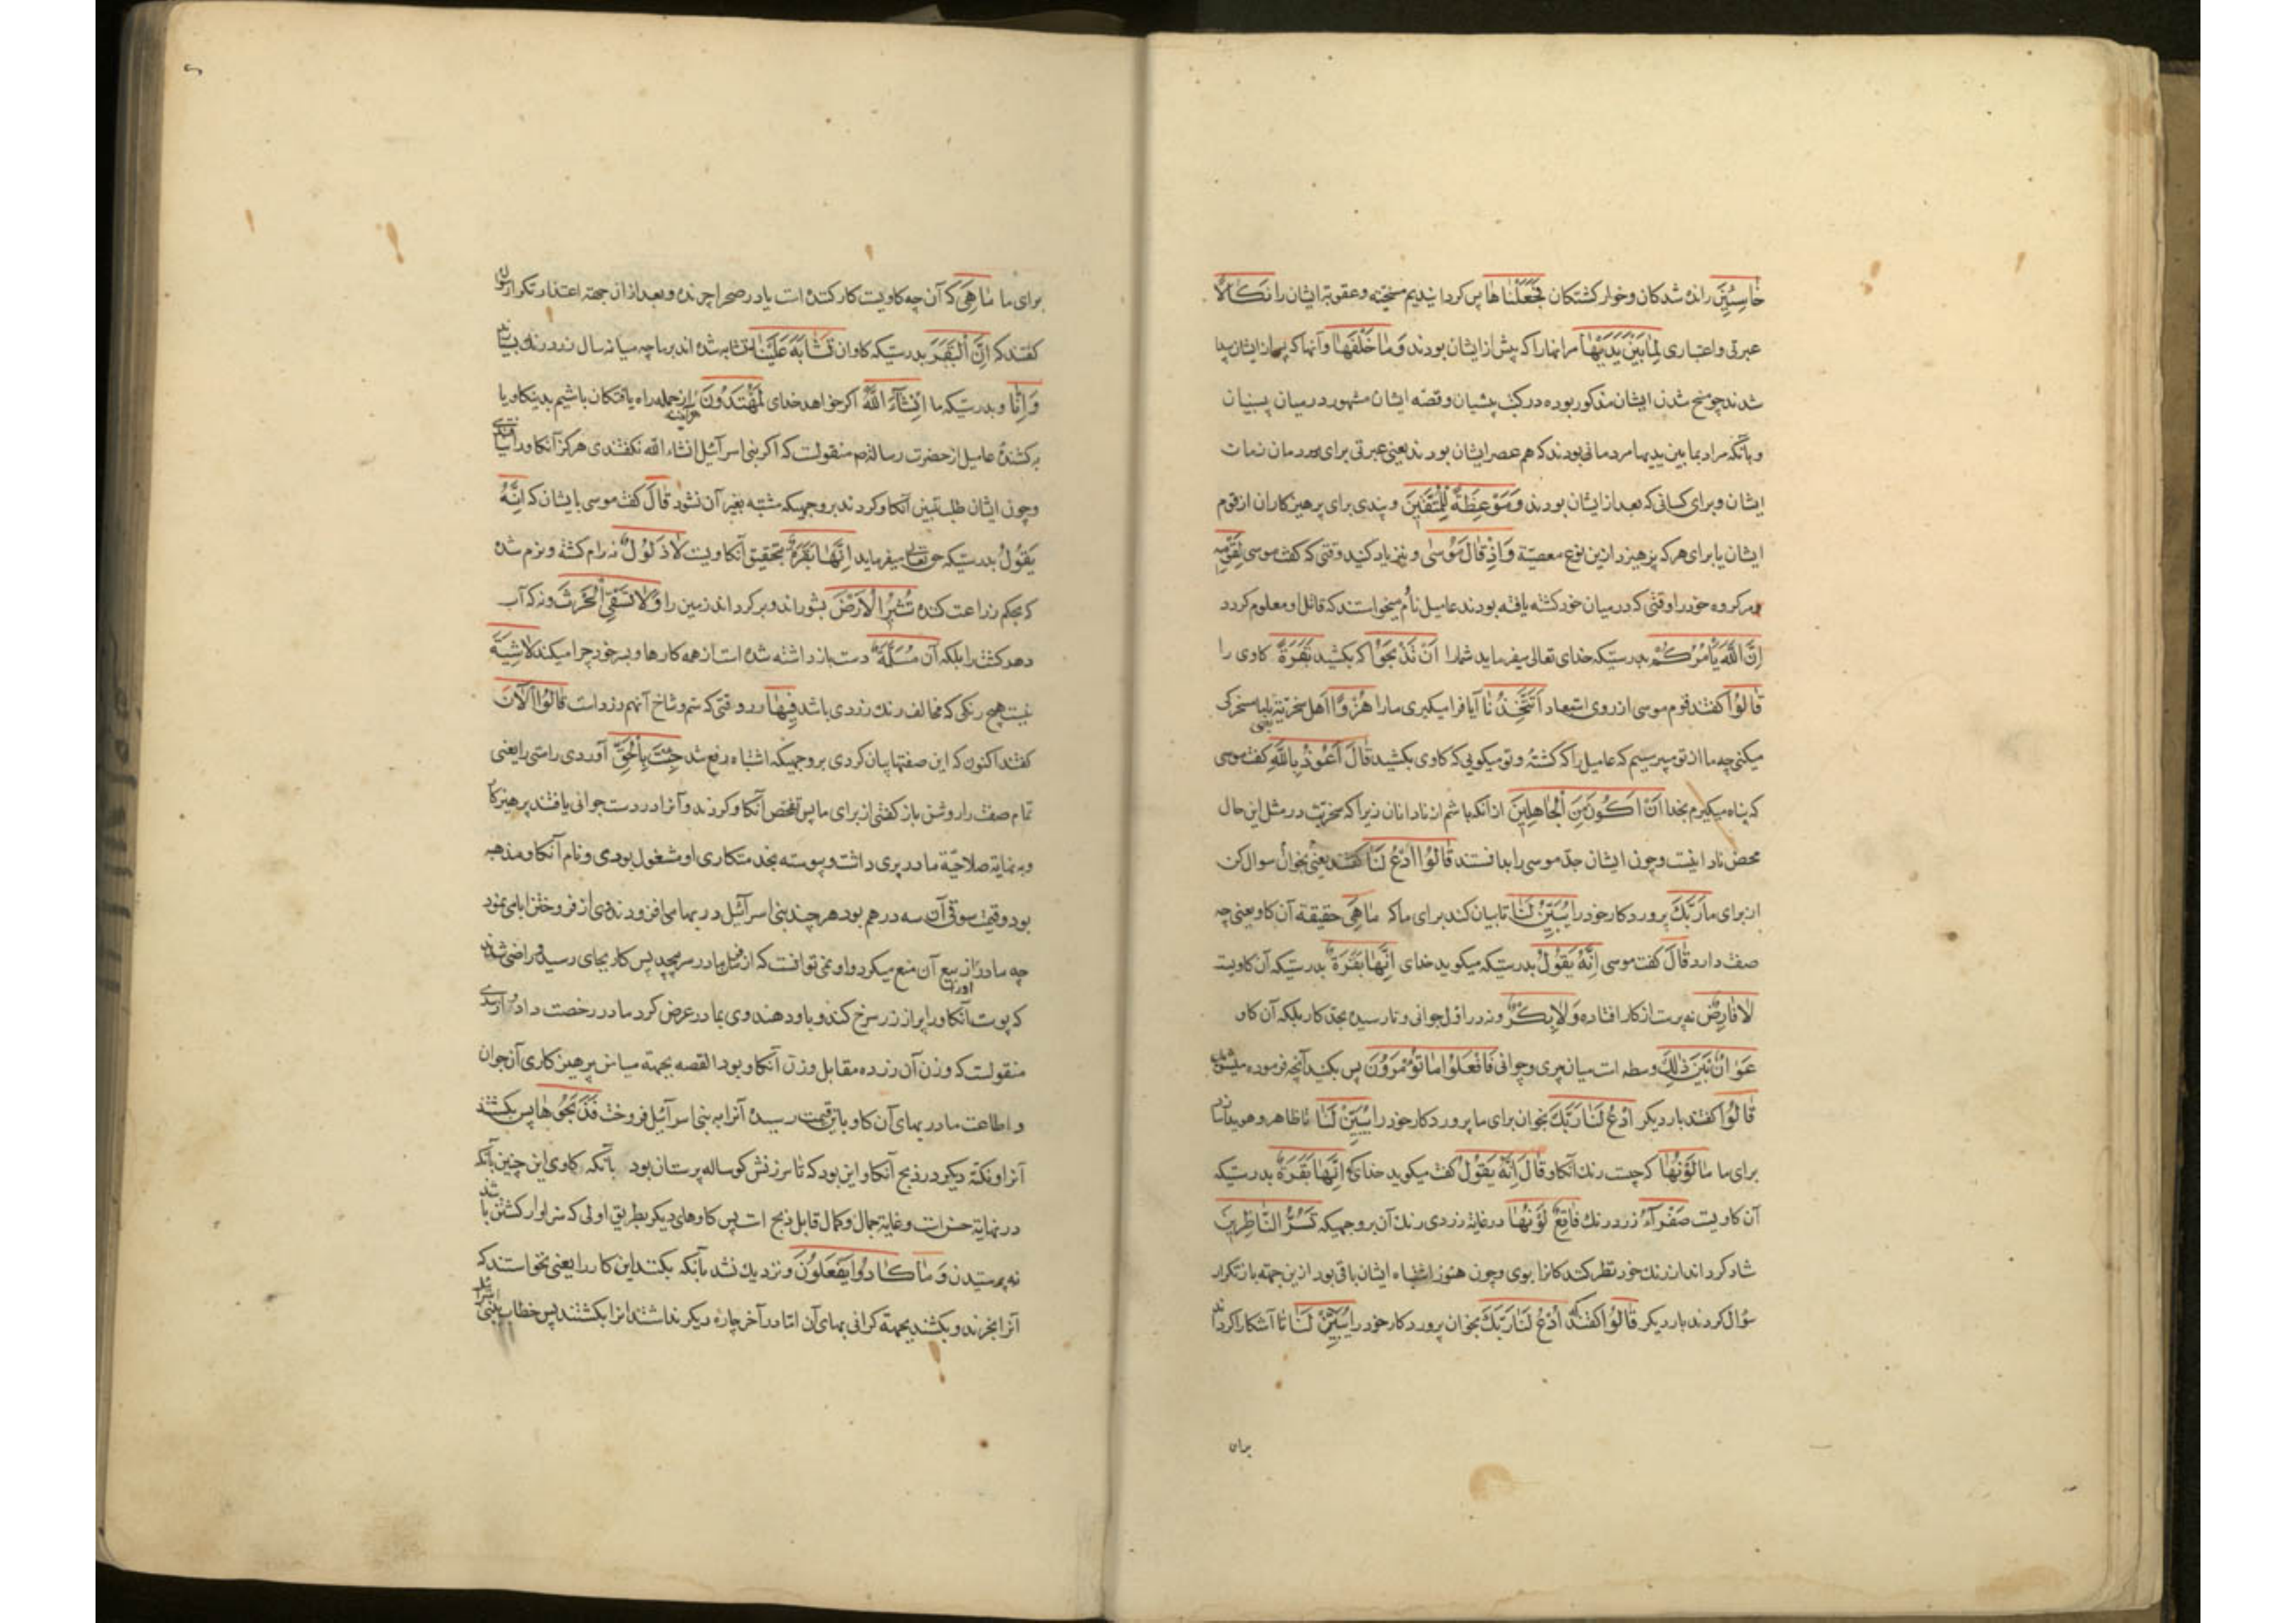 خاسِئِينَ رانده شدکان وخوار کشتکان فَجَعَلْنَاهَا پس کردانیدیم مسخیّه وعقوبة ایشان را نَکَالًا
عبرتی واعتباری لِمَا بَیْنَ یَدَیْهَا مرانهارا که پیش از ایشان بودند وَمَا خَلْفَهَا وآنها که پس از ایشان پیدا
شدند چو مسخ شدن ایشان مذکور بوده در کتب پشیان وقصّه ایشان مشهور در میان پسینیان
وبآنکه مراد بما بین یدیها مردمانی بودند که هم عصر ایشان بودند یعنی عبرتی برای مردمان زمان
ایشان وبرای کسانی که بعد از ایشان بودند وَمَوْعِظَةً لِلْمُتَّقِینَ وپندی برای پرهیزکاران از قوم
ایشان یا برای هر که پرهیزد از این نوع معصیّة وَاِذْ قَالَ مُوسٰی ونیز یاد کنید وقتی که کفت موسی لِقَوْمِهِ
مر کروه خود را وقتی که در میان خود کشته یافته بودند عامیل نام میخواستند که قاتل او معلوم کردد
اِنَّ اللّٰهَ یَأْمُرُکُمْ بدرستیکه خدای تعالی میفرماید شمارا اَنْ تَذْبَحُوا که بکشید بَقَرَةً کاوی را
قَالُوا کفتند قوم موسی از روی استبعاد اَتَتَّخِذُنَا آیا فرا میکیری مارا هُزُوًا اهل سخریّة یعنی با ما سخرکی
میکنی چه ما از تو میپرسیم که عامیل را که کشته وتو میکویی که کاوی بکشید قَالَ اَعُوذُ بِاللّٰهِ کفت موسی
که پناه میکیرم بخدا اَنْ اَکُونَ مِنَ الْجَاهِلِینَ از آنکه باشم از نادانان زیرا که سخریّت در مثل این حال
محض نادانیست وچون ایشان جدّ موسی را بدانستند قَالُوا ادْعُ لَنَا کفتند یعنی بخوان سوال کن
از برای ما رَبَّکَ پروردکار خود را یُبَیِّنْ لَنَا تا بیان کند برای ما که مَا هِیَ حقیقة آن کاو یعنی چه
صفت دارد قَالَ کفت موسی اِنَّهُ یَقُولُ بدرستیکه میکوید خدای اِنَّهَا بَقَرَةٌ بدرستیکه آن کاویسته
لَا فَارِضٌ نه پیرست از کار افتاده وَلَا بِکْرٌ ونه در اوّل جوانی ونارسیده بحدّ کار بلکه آن کاو
عَوَانٌ بَیْنَ ذٰلِکَ وسطه است میان پیری وجوانی فَافْعَلُوا مَا تُؤْمَرُونَ پس بکنید آنچه فرموده میشوید
قَالُوا کفتند بار دیکر ادْعُ لَنَا رَبَّکَ بخوان برای ما پروردکار خود را یُبَیِّنْ لَنَا تا ظاهر وهویدا سازد
برای ما مَا لَوْنُهَا که چیست رنك آنکاو قَالَ اِنَّهُ یَقُولُ کفت میکوید خدای که اِنَّهَا بَقَرَةٌ بدرستیکه
آن کاویست صَفْرَآءُ زرد رنك فَاقِعٌ لَوْنُهَا در غایة زردی رنك آن بر وجهیکه تَسُرُّ النَّاظِرِینَ
شاد کرداند از رنك خود نظر کنندکانرا بوی وچون هنوز اشتباه ایشان باقی بود از این جهته باز تکرار
سؤال کردند بار دیکر قَالُوا کفتند که ادْعُ لَنَا رَبَّکَ بخوان پروردکار خود را یُبَیِّنْ لَنَا تا آشکارا کرداند
برای
برای ما مَا هِیَ که آن چه کاویست کار کننده است یا در صحرا چرنده وبعد از ان جهته اعتذار تکرار سوال
کفتند که اِنَّ الْبَقَرَ بدرستیکه کاوان تَشَابَهَ عَلَیْنَا متشابه شده اند بر ما چه میانه سال زرد رنك بسیارند
وَاِنَّا وبدرستیکه ما اِنْشَآءَ اللّٰهُ اکر خواهد خدای لَمُهْتَدُونَ هرآینه از جمله راه یافتکان باشیم بدینکاو یا
بر کشندهٔ عامیل از حضرت رسالتم منقولست که اکر بنی اسرآئیل انشاء الله نکفتندی هرکز آنکاو را نیافتندی
وچون ایشان طلب تبیین آنکاو کردند بر وجهیکه مشتبه بغیر آن نشود قَالَ کفت موسی بایشان که اِنَّهُ
یَقُولُ بدرستیکه حق تعالی میفرماید اِنَّهَا بَقَرَةٌ بتحقیق آنکاویست لَا ذَلُولٌ نه رام کشته ونرم شده
که بحکم زراعت کننده تُثِیرُ الْاَرْضَ بشوراند وبرکرداند زمین را وَلَا تَسْقِی الْحَرْثَ ونه که آب
دهد کشت را بلکه آن مُسَلَّمَةٌ دست باز داشته شده است از همه کارها وبسر خود چرا میکند لَا شِیَةَ
نیست هیچ رنکی که مخالف رنك زردی باشد فِیهَا در او حتی که سم وشاخ آنهم زرد است قَالُوا الْاٰنَ
کفتند اکنون که این صفتها بیان کردی بر وجهیکه اشتباه رفع شد جِئْتَ بِالْحَقِّ آوردی راستی را یعنی
تمام صفت را روشن باز کفتی از برای ما پس تفحّص آنکاو کردند وآنرا در دست جوانی یافتند پرهیزکار
وبه نهایة صلاحیّة مادر پیری داشت وپیوسته بخدمتکاری او مشغول بودی ونام آنکاو مذهبه
بود وقیمت سوقی آن سه درهم بود هر چند بنی اسرآئیل در بها می افزودند وی از فروختن ابا می نمود
چه مادر او را از بیع آن منع میکرد واو نمی توانست که از قبل مادر سرپیچد پس کار بجای رسید که راضی شدند
که پوست آنکاو را پر از زر سرخ کنند وباو دهند وی بمادر عرض کرد مادر رخصت داد
منقولست که وزن آن زر ده مقابل وزن آنکاو بود القصه بجهته میامن پرهیزکاری آن جوان
واطاعت مادر بهای آن کاو باین قیمت رسید آنرا به بنی اسرآئیل فروخت فَذَبَحُوهَا پس بکشتند
آنرا ونکتهٔ دیکر در ذبح آنکاو این بود که تا سرزنش کوساله پرستان بود بآنکه کاوی این چنین بآنکه
در نهایة حسن است وغایة جمال وکمال قابل ذبح است پس کاوهای دیکر بطریق اولی که سزاوار کشتن باشند
نه پرستیدن وَمَا کَادُوا یَفْعَلُونَ ونزدیك نشد بآنکه بکنند این کار را یعنی نخواستند که
آنرا بخرند وبکشند بجهته کرانی بهای آن امّا در آخر چارهٔ دیکر نداشتند انرا بکشتند پس خطاب ببنی اسرائیل